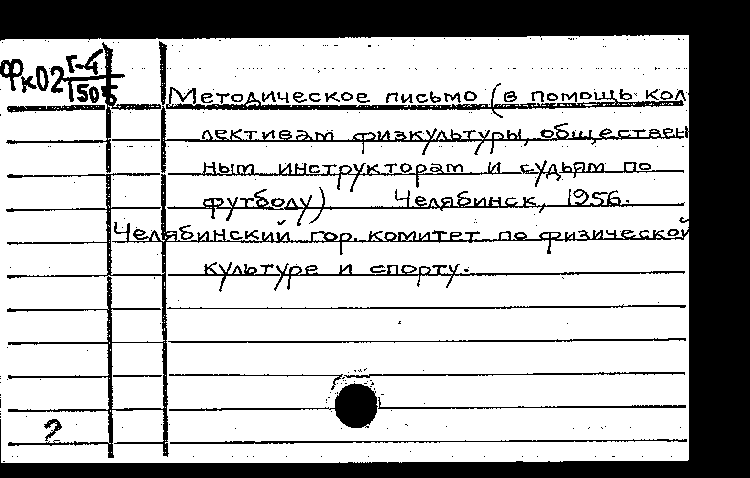 Фк02 Г-4
1505
Методическое письмо (в помощь кол
лективам физкультуры, обществен
ным инструкторам и судьям по
футболу). Челябинск, 1956.
Челябинский гор. комитет по физической
культуре и спорту.
2